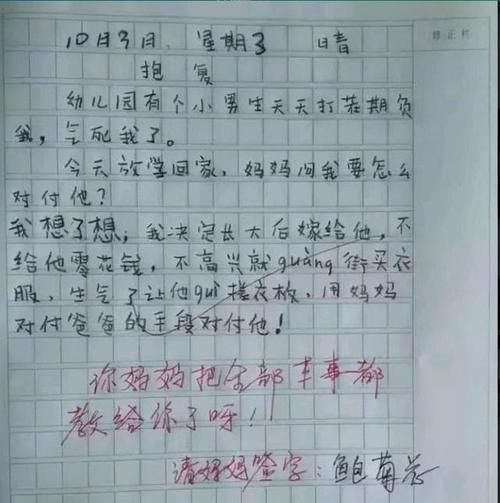 10月3日. 星期3 晴
抱复
幼儿园有个小男生天天打茬期负
我，气死我了。
今天放学回家，妈妈问我要怎么
对付他？
我想了想，我决定长大后嫁给他，不
给他零花钱，不高兴就guàng街买衣
服，生气了让他guì搓衣板，用妈妈
对付爸爸的手段对付他！
你妈妈把全部本事都
教给你了呀！
请妈妈签字：鲍菊芯
修正栏